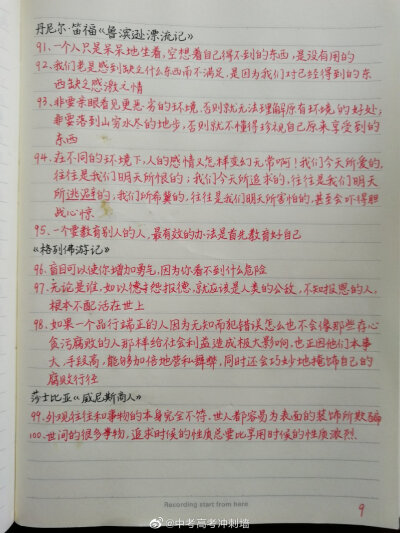 丹尼尔·笛福《鲁滨逊漂流记》
91、一个人只是呆呆地坐着,空想着自己得不到的东西,是没有用的
92、我们老是感到缺乏什么东西而不满足,是因为我们对已经得到的东
西缺乏感激之情
93、非要亲眼看见更恶劣的环境,否则就无法理解原有环境的好处;
非要落到山穷水尽的地步,否则就不懂得珍视自己原来享受到的
东西
94、在不同的环境下,人的感情又怎样变幻无常啊!我们今天所爱的,
往往是我们明天所恨的;我们今天所追求的,往往是我们明天
所逃避的;我们所希冀的,往往是我们明天所害怕的,甚至会吓得胆
战心惊
95、一个要教育别人的人,最有效的办法是首先教育好自己
《格列佛游记》
96、盲目可以使你增加勇气,因为你看不到什么危险
97、无论是谁,如以德予怨报德,就应该是人类的公敌,不知报恩的人,
根本不配活在世上
98、如果一个品行端正的人因为无知而犯错误怎么也不会像那些存心
贪污腐败的人那样给社会利益造成极大影响,也正因他们本事
大、手段高,能够加倍地营私舞弊,同时还会巧妙地掩饰自己的
腐败行径
莎士比亚《威尼斯商人》
99、外观往往和事物的本身完全不符,世人都容易为表面的装饰所欺骗
100、世间的很多事物,追求时候的性质总要比享用时候的性质浓烈
Recording start from here
9
@中考高考冲刺墙